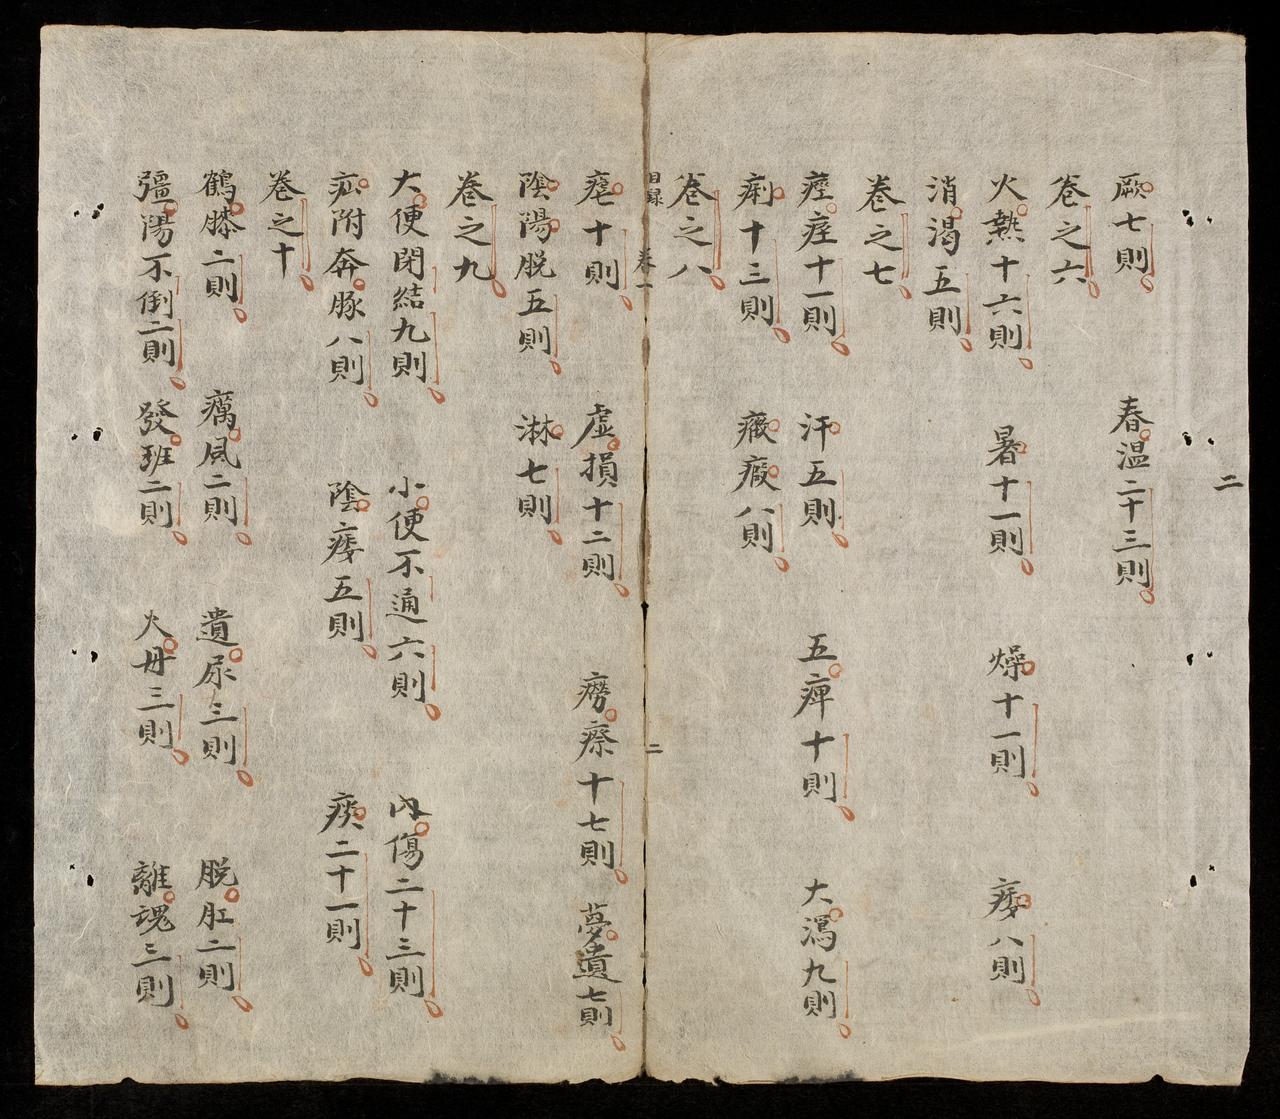 厥七則 春温二十三則
卷之六
火熱十六則 暑十一則 燥十一則 痿八則
消渴五則
卷之七
痙痓十一則 汗五則 五痺十則 大瀉九則
痢十三則 癥瘕八則
卷之八
目録 卷一 二
瘧十則 虛損十二則 癆瘵十七則 夢遺七則
陰陽脫五則 淋七則
卷之九
大便閉結九則 小便不通六則 內傷二十三則
疝附奔豚八則 陰痿五則 痰二十一則
卷之十
鶴膝二則 癘風二則 遺尿三則 脫肛二則
彊陽不倒二則 發班二則 火丹三則 離魂三則
二